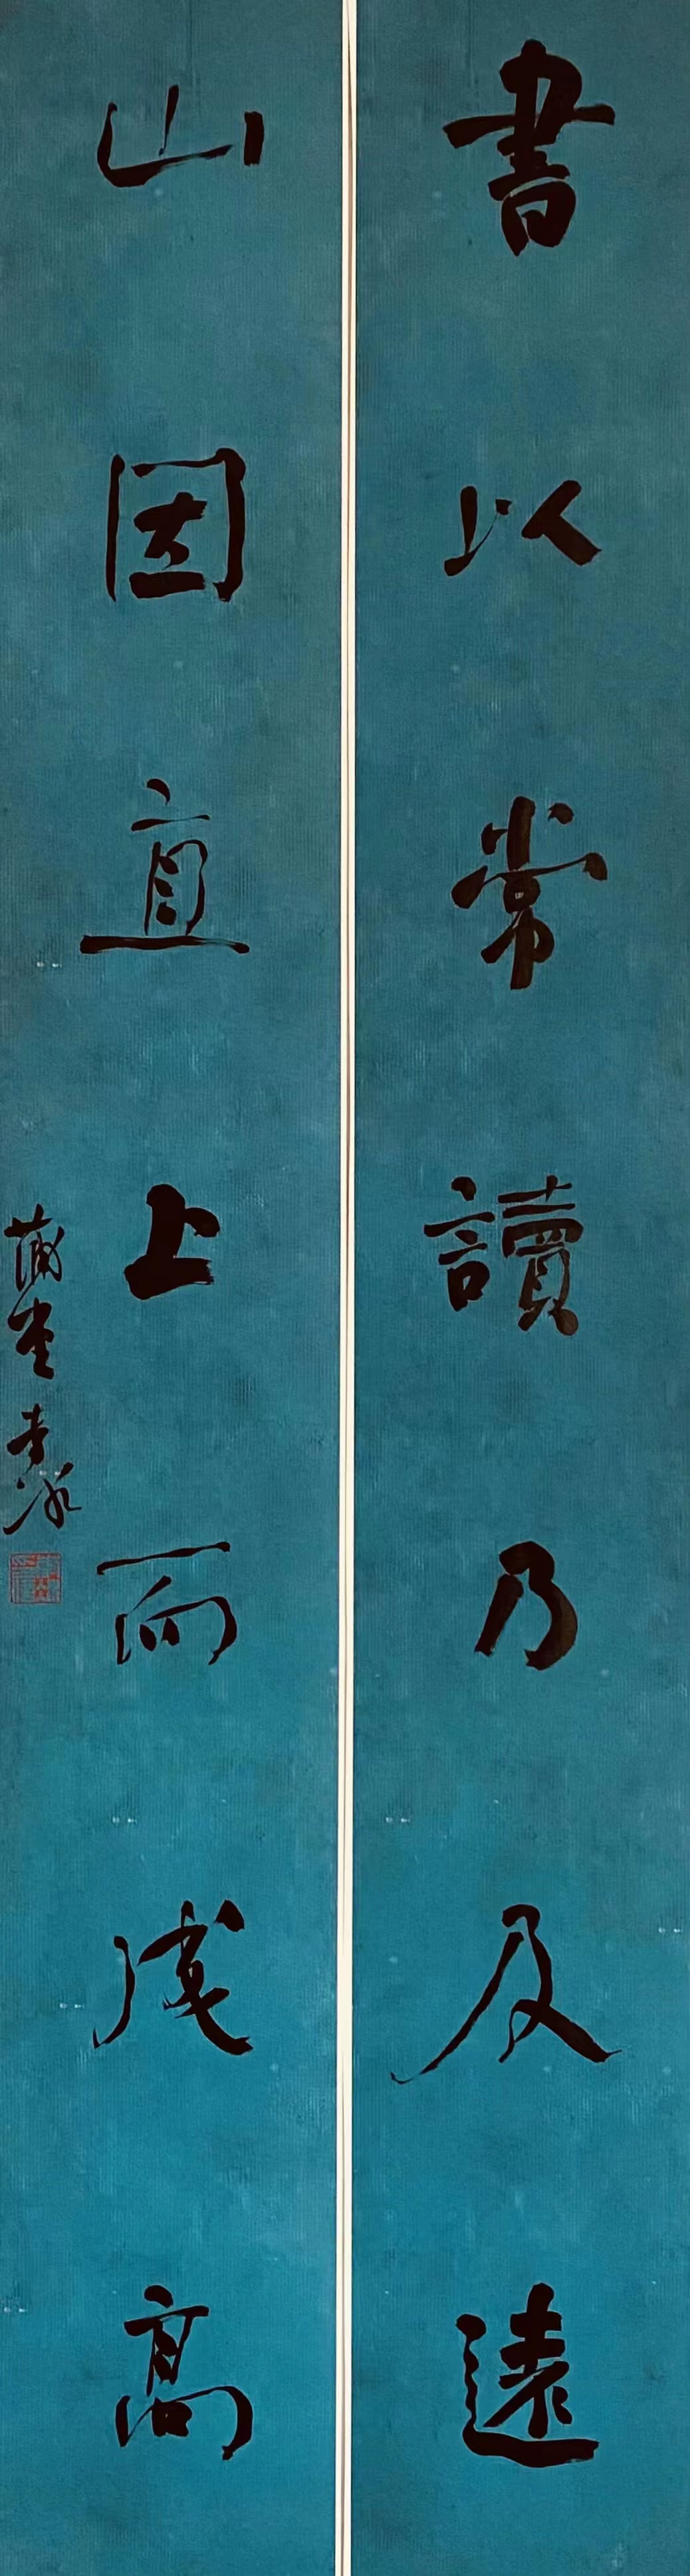 書以常讀乃及遠
山因直上而成高